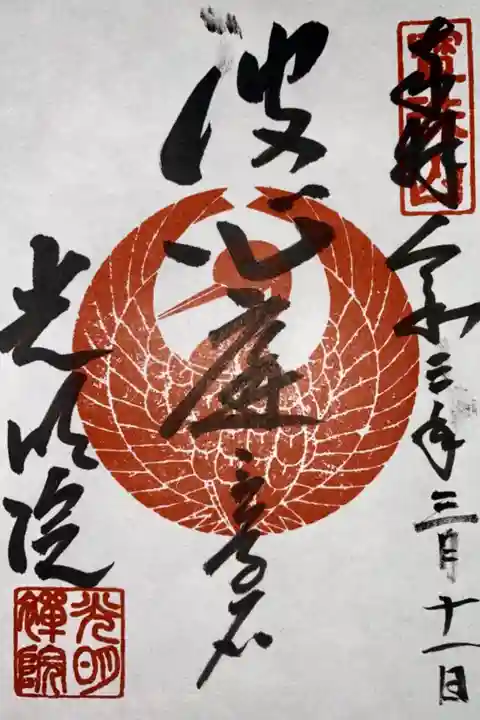 奉拝
令和三年三月十一日
波心庭
光明院
光明禪院